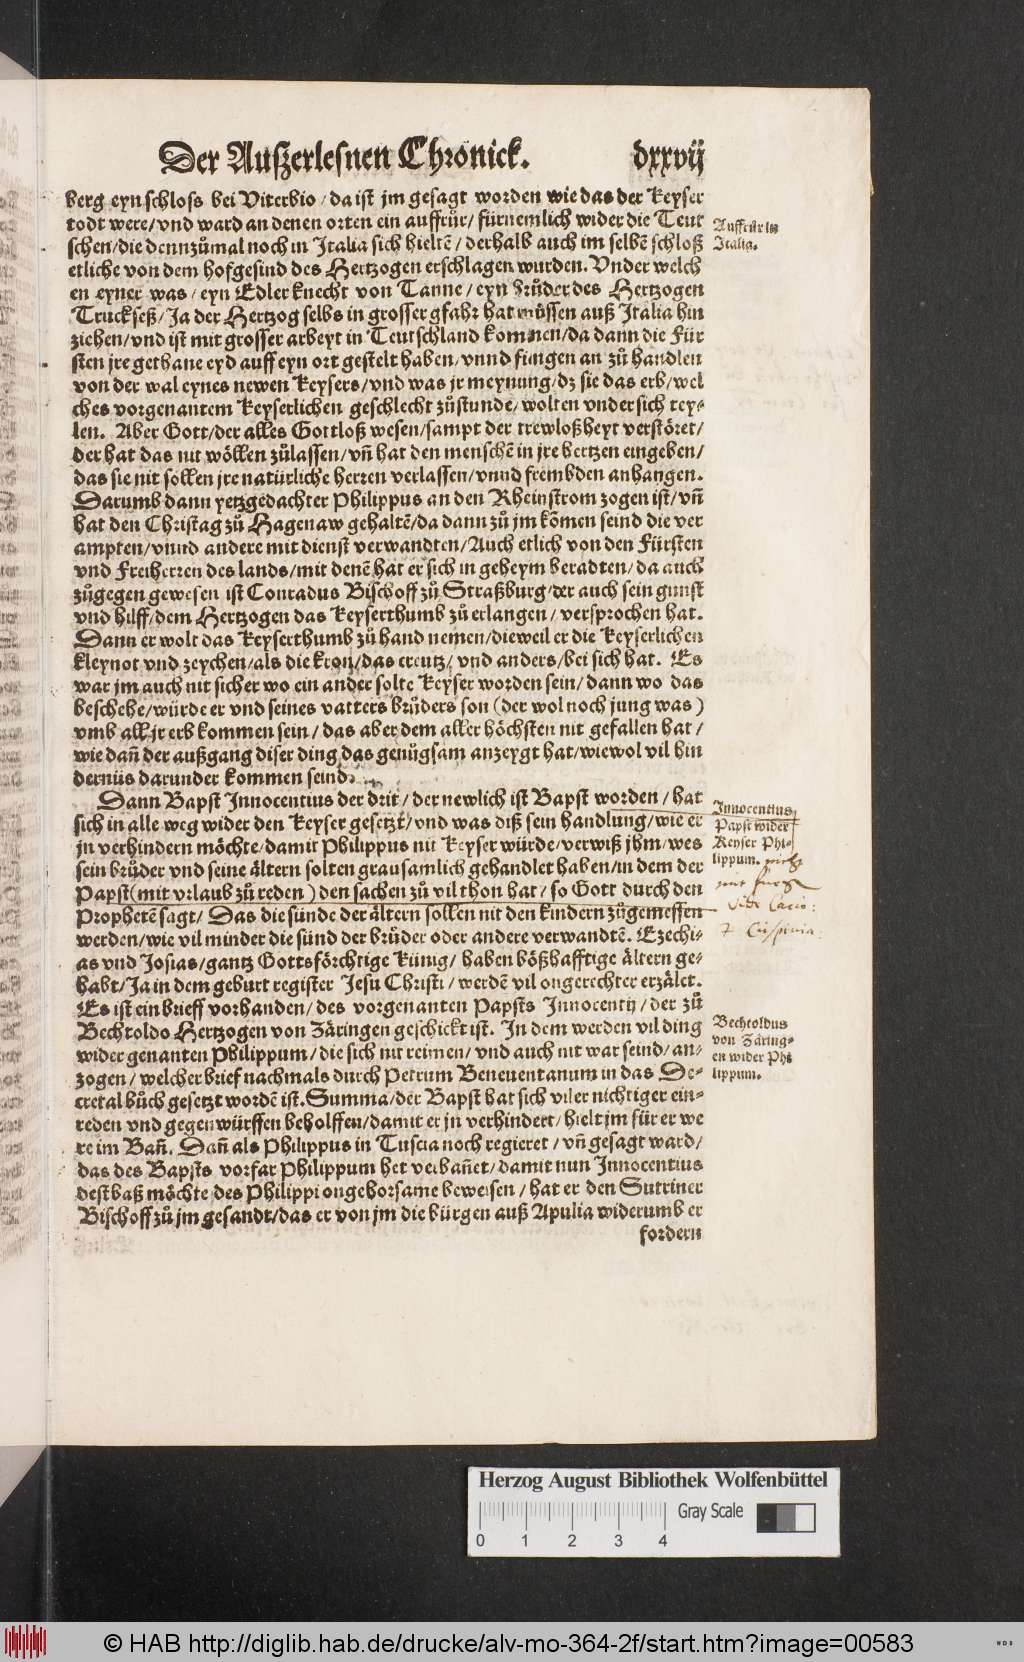 Der Außerlesnen Chronick. dxxvij
berg eyn schloss bei Viterbio / da ist jm gesagt worden wie das der Keyser
todt were / vnd ward an denen orten ein auffrůr / fürnemlich wider die Teut
schen / die dennzůmal noch in Italia sich hieltē / derhalb auch im selbē schloß
etliche von dem hofgesind des Hertzogen erschlagen wurden. Vnder welch
en eyner was / eyn Edler knecht von Tanne / eyn Brůder des Hertzogen
Truckseß / Ja der Hertzog selbs in grosser gfahr hat müssen auß Italia hin
ziehen / vnd ist mit grosser arbeyt in Teutschland kommen / da dann die Für
sten jre gethane eyd auff eyn ort gestelt haben / vnnd fiengen an zů handlen
von der wal eynes newen Keysers / vnd was jr meynung / dz sie das erb / wel
ches vorgenantem Keyserlichen geschlecht zůstunde / wolten vnder sich tey-
len. Aber Gott / der alles Gottloß wesen / sampt der trewloßheyt verstöret /
der hat das nit wöllen zůlassen / vñ hat den menschē in jre hertzen eingeben /
das sie nit sollen jre natürliche herren verlassen / vnnd frembden anhangen.
Darumb dann yetzgedachter Philippus an den Rheinstrom zogen ist / vñ
hat den Christag zů Hagenaw gehaltē / da dann zů jm kōmen seind die ver
ampten / vnnd andere mit dienst verwandten / Auch etlich von den Fürsten
vnd Freiherren des lands / mit denē hat er sich in geheym beradten / da auch
zůgegen gewesen ist Conradus Bischoff zů Straßburg / der auch sein gunst
vnd hilff / dem Hertzogen das Keyserthumb zů erlangen / versprochen hat.
Dann er wolt das Keyserthumb zů hand nemen / dieweil er die Keyserlichen
kleynot vnd zeychen / als die kron / das creutz / vnd anders / bei sich hat. Es
war jm auch nit sicher wo ein ander solte Keyser worden sein / dann wo das
beschehe / würde er vnd seines vatters brůders son (der wol noch jung was)
vmb all jr erb kommen sein / das aber dem aller höchsten nit gefallen hat /
wie dañ der außgang diser ding das genůgsam anzeygt hat / wiewol vil hin
dernüs darunder kommen seind.
Dann Bapst Innocentius der drit / der newlich ist Bapst worden / hat
sich in alle weg wider den Keyser gesetzt / vnd was diß sein handlung / wie er
jn verhindern möchte / damit Philippus nit Keyser würde / verwiß jhm / wes
sein brůder vnd seine ältern solten grausamlich gehandlet haben / in dem der
Papst (mit vrlaub zů reden) den sachen zů vil thon hat / so Gott durch den
Prophetē sagt / Das die sünde der ältern sollen nit den kindern zůgemessen
werden / wie vil minder die sünd der brůder oder andere verwandtē. Ezechi-
as vnd Josias / gantz Gottsförchtige Künig / haben bößhafftige ältern ge-
habt / Ja in dem geburt register Jesu Christi / werdē vil ongerechter erzälet.
Es ist ein brieff vorhanden / des vorgenanten Papsts Innocentij / der zů
Bechtoldo Hertzogen von Zäringen geschickt ist. In dem werden vil ding
wider genanten Philippum / die sich nit reimen / vnd auch nit war seind / an-
zogen / welcher brief nachmals durch Petrum Beneuentanum in das De-
cretal bůch gesetzt wordē ist. Summa / der Bapst hat sich viler nichtiger ein-
reden vnd gegenwürffen beholffen / damit er jn verhindert / hielt jm für er we
re im Bañ. Dañ als Philippus in Tuscia noch regieret / vñ gesagt ward /
das des Bapsts vorfar Philippum het verbañet / damit nun Innocentius
destbaß möchte des Philippi ongehorsame beweisen / hat er den Sutriner
Bischoff zů jm gesandt / das er von jm die bürgen auß Apulia widerumb er
fordern
Auffrůr in
Italia.
Innocentius
Papst wider
Keyser Phi-
lippum.
Vide
Cuspinia:
Bechtoldus
von Zäring-
en wider Phi
lippum.
Herzog August Bibliothek Wolfenbüttel
Gray Scale
0 1 2 3 4
© HAB http://diglib.hab.de/drucke/alv-mo-364-2f/start.htm?image=00583